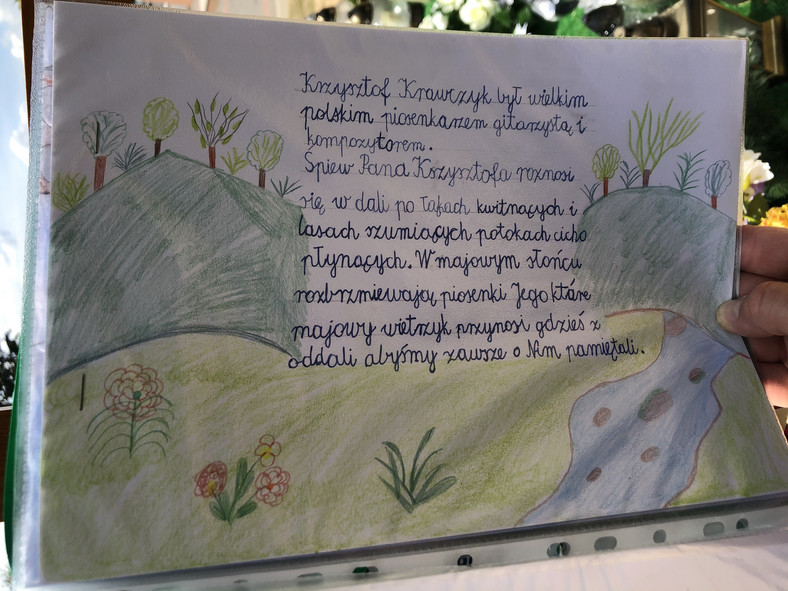 Krzysztof Krawczyk był wielkim
polskim piosenkarzem gitarzystą i
kompozytorem.
Śpiew Pana Krzysztofa roznosi
się w dali po łąkach kwitnących i
lasach szumiących potokach cicho
płynących. W majowym słońcu
rozbrzmiewają piosenki Jego które
majowy wietrzyk przynosi gdzieś z
oddali abyśmy zawsze o Nim pamiętali.